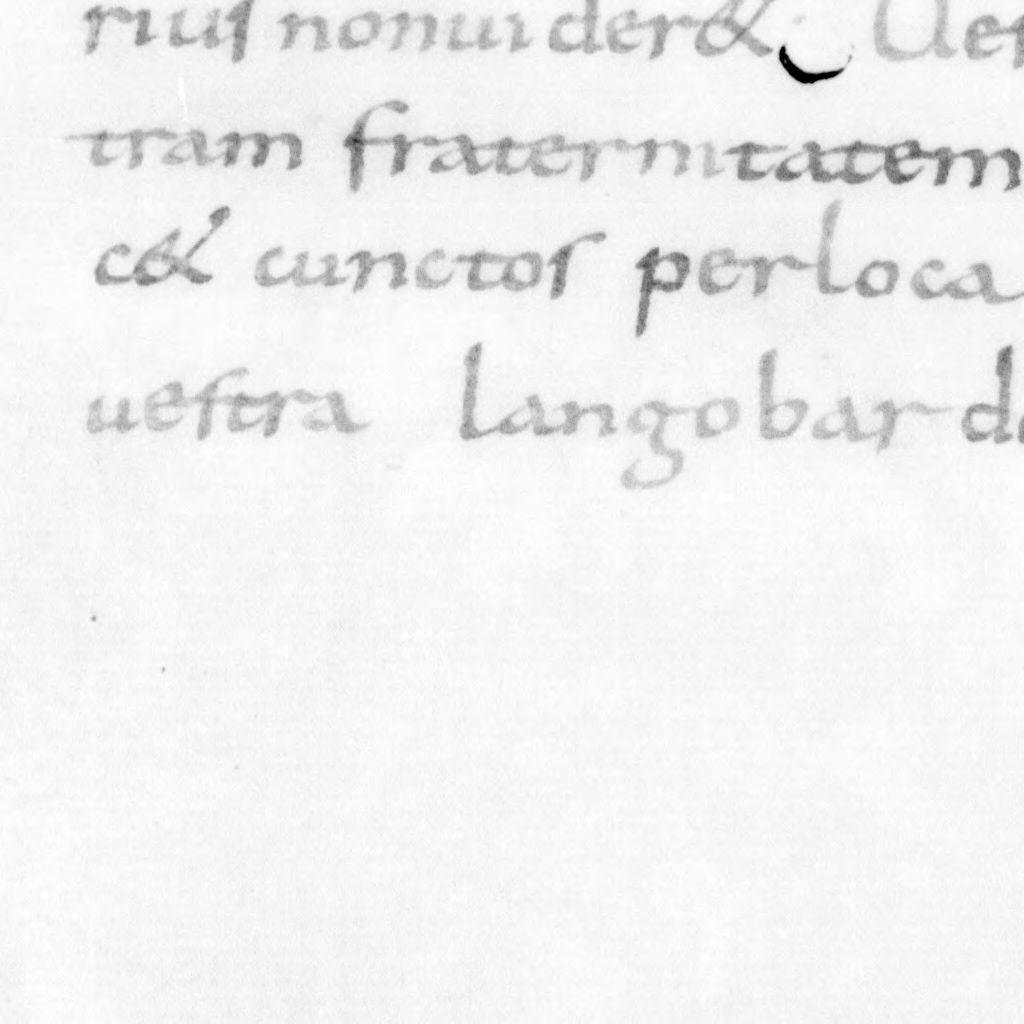 riuſ nonuider& Ueſ
tram fraternitatem
c& cunctoſ perloca
ueſtra langobarde